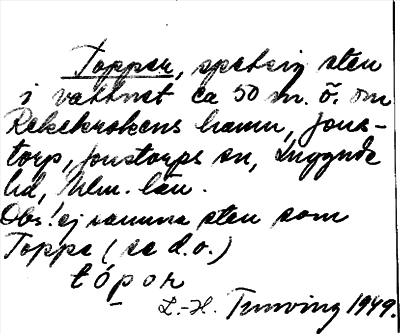 Topper, spetsig sten
i vattnet ca 50 m. ö. om
Rekekrokens hamn, Jons-
torp, Jonstorps sn, Luggude
hd, Mlm. län.
Obs! ej samma sten som
Toppa (se d.o.)
tópər
L.-H. Tunving 1949.